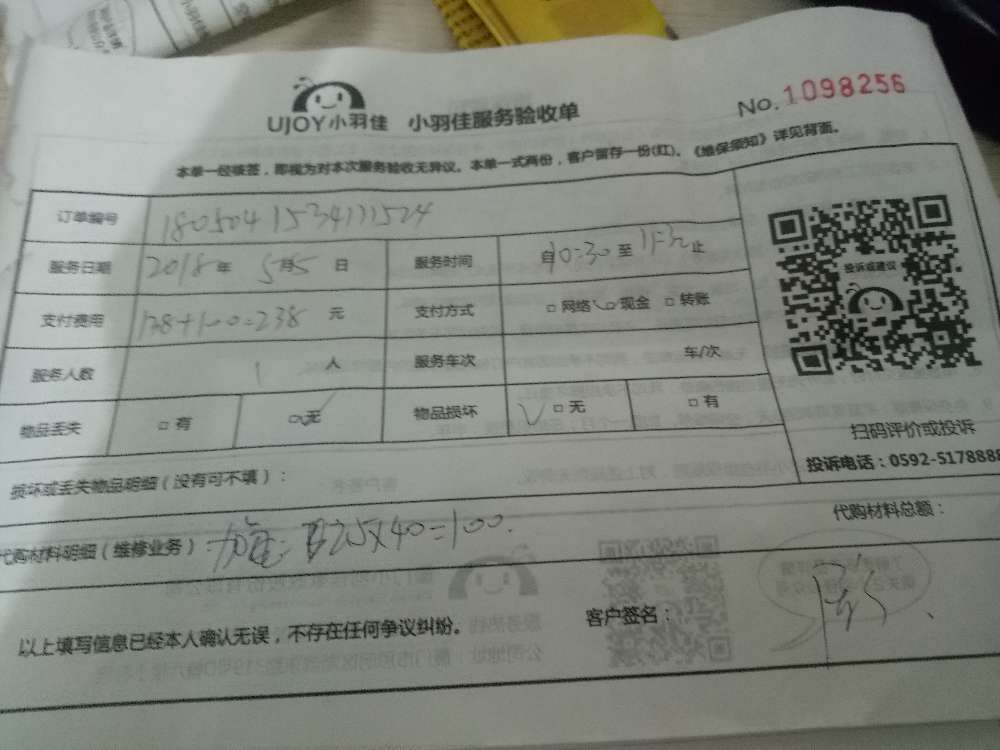 UJOY小羽佳 小羽佳服务验收单 No.1098256
本单一经核签，即视为对本次服务验收无异议。本单一式两份，客户留存一份(红)。《维保须知》详见背面。
订单编号 1805041534111524
服务日期 2018年5月5日 服务时间 自10:30至 止
支付费用 138+100=238 元 支付方式 □网络 □现金 □转账
服务人数 1 人 服务车次 车/次
物品丢失 □有 □无 物品损坏 □无 □有
投诉或建议
扫码评价或投诉
投诉电话：0592-5178888
损坏或丢失物品明细（没有可不填）：
代购材料明细（维修业务）： 2.5×40=100.
代购材料总额：
以上填写信息已经本人确认无误，不存在任何争议纠纷。 客户签名：